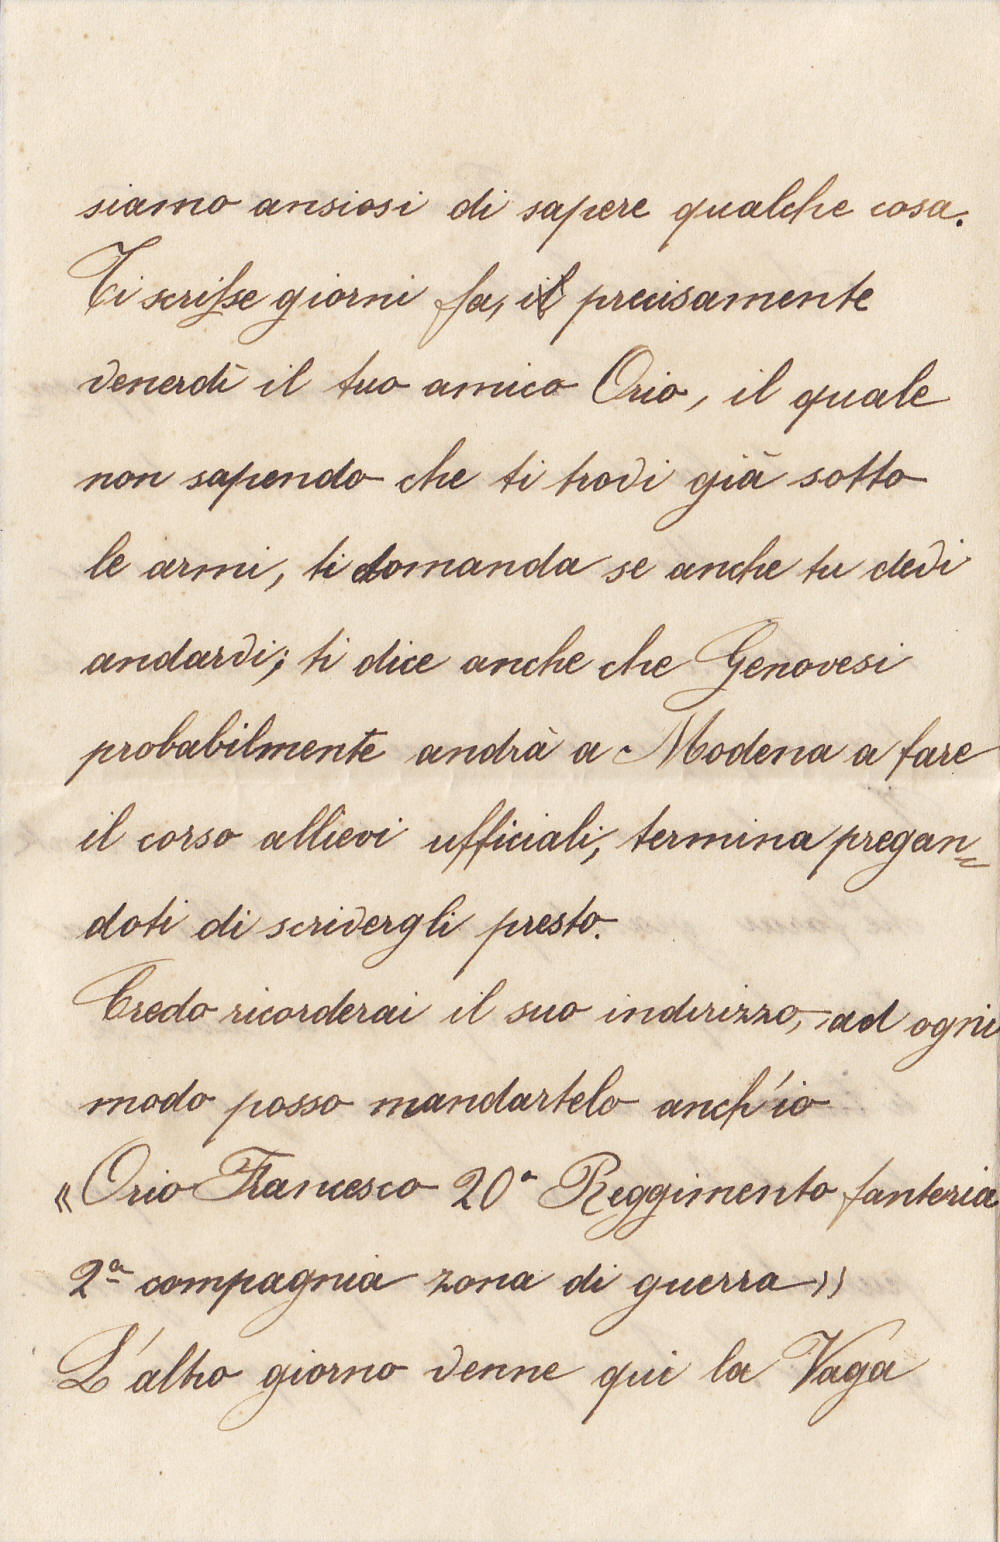 siamo ansiosi di sapere qualche cosa.
Ti scrisse giorni fa, il precisamente
venerdì il tuo amico Orio, il quale
non sapendo che ti trovi già sotto
le armi, ti domanda se anche tu devi
andarvi; ti dice anche che Genovesi
probabilmente andrà a Modena a fare
il corso allievi ufficiali, termina pregan=
doti di scrivergli presto.
Credo ricorderai il suo indirizzo, ad ogni
modo posso mandartelo anch'io
«Orio Francesco 20º Reggimento fanteria
2ª compagnia zona di guerra»
L'altro giorno venne qui la Vaga